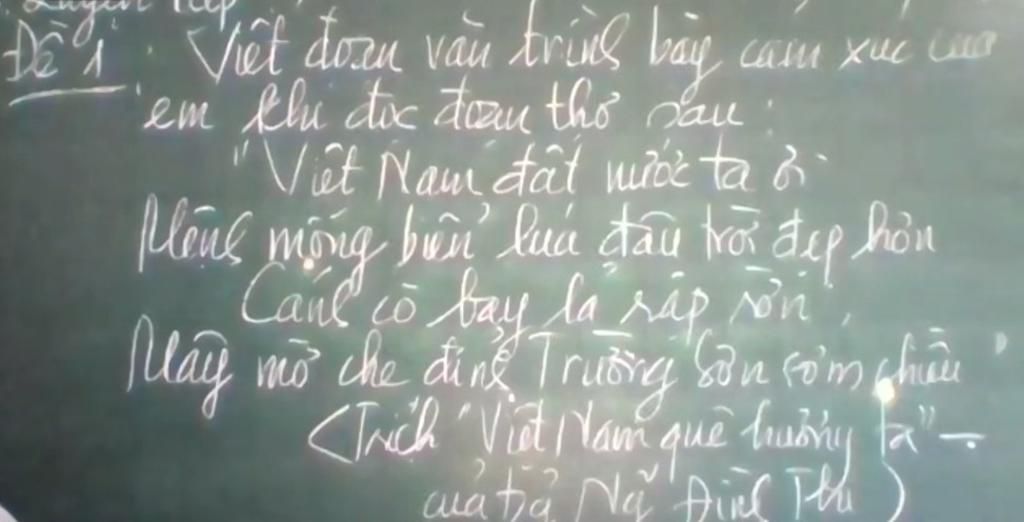 Luyện tập
Đề 1: Viết đoạn văn trình bày cảm xúc của
em khi đọc đoạn thơ sau:
"Việt Nam đất nước ta ơi
Mênh mông biển lúa đâu trời đẹp hơn
Cánh cò bay lả rập rờn,
Mây mờ che đỉnh Trường Sơn sớm chiều"
(Trích "Việt Nam quê hương ta" -
của t/g Ng Đình Thi)